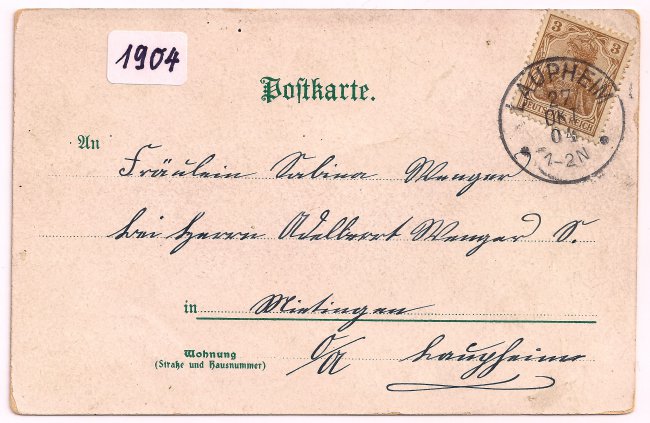 1904
3 3
DEUTSCHES REICH
LAUPHEIM
27
OKT
04
1-2N
Postkarte.
An
Fräulein Sabina Wenger
bei Herrn Adelbert Wenger S.
in Mietingen
Wohnung
(Straße und Hausnummer)
O/A Laupheim